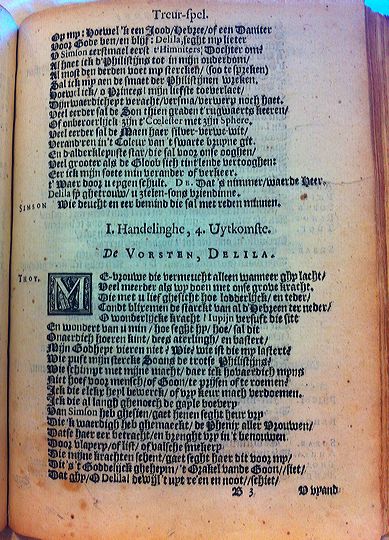 Treur-spel.
Op my: Hoewel 'k een Jood/ Hebree/ of een Daniter
Voor Gode ben/ en blijf: Delila, seght my liever
V Simson eerstmael eerst 't Himniters Dochter om?
Al haet ick d'Philistijns tot in mijn onderdom/
Al most den derden voet my stercken/ (soo te spreken)
Sal ick my aen de smaet der Philistijnen wreken.
Hoewel ick/ o Princes! mijn liefste toeverlaet/
Dijn waerdicheyt veracht/ versma/ verwerp noch haet.
Veel eerder sal de Son thien graden t'rugwaerts keeren/
Of onberoerlick zijn t'Colesser met zijn Sphere.
Veel eerder sal de Maen haer silver-verwe wit/
Verand'ren in't Coleur van 't swarte vrypne git.
En d'alderkleynste star/ die sal voor onse ooghen/
Veel grooter als de Cloob sich tintlende vertooghen:
Eer ick mijn soete min verander of verkeer.
't Waer door u eygen schult. DE. Dat 's nimmer/ waerde Heer.
Delila sy ghetrouw/ u zielen-sons vriendinne.
SIMSON Wie deucht en eer bemind die sal met reden minnen.
I. Handelinghe, 4. Uytkomste.
DE VORSTEN, DELILA.
TROY. ME-vrouwe die vermeucht alleen wanneer ghy lacht/
Veel meerder als wy doen met onse grove kracht.
Die met u lief ghesicht hoe lodderlijck/ en teder/
Condt blixemen de starckt van al d'Hebreen ter neder/
O wonderlijcke kracht!
En wondert van u min/ hoe seght hy/ hoe/ sal dit
Onaerdich hoeren kint/ dees aterlingh/ en bastert/
Mijn Godheyt vieren niet? Wie/ wie ist die my lastert?
Wie puft mijn sterckte Soons de trotse Philistijns?
Wie schimpt met mijne macht/ daer ick hovaerdich mijns
Niet hoef voor mensch/ of Goon/ te prijsen of te roemen?
Ick die elcks heyl bewerck/ of vry keur mach verdoemen.
Ick die al langh ghenoech de gaple boevery
Van Simson heb ghesien/ gaet henen seght heur vry
Die 'k waerdigh heb ghemaeckt/ de Phenix aller Vrouwen/
Datse haer eer betracht/ en brenght vry in't benouwen.
Door vlayery/ of list/ of valsche smekery
Die mijne krachten schent/ gaet seght haer dit voor my/
Dit 's t' Goddelijck gheheym/ 't Orakel vande Goon/ /siet/
Dat ghy/ O Delila dewijl 't uyt re'en en noot/ /schiet/
B 3 V vyand